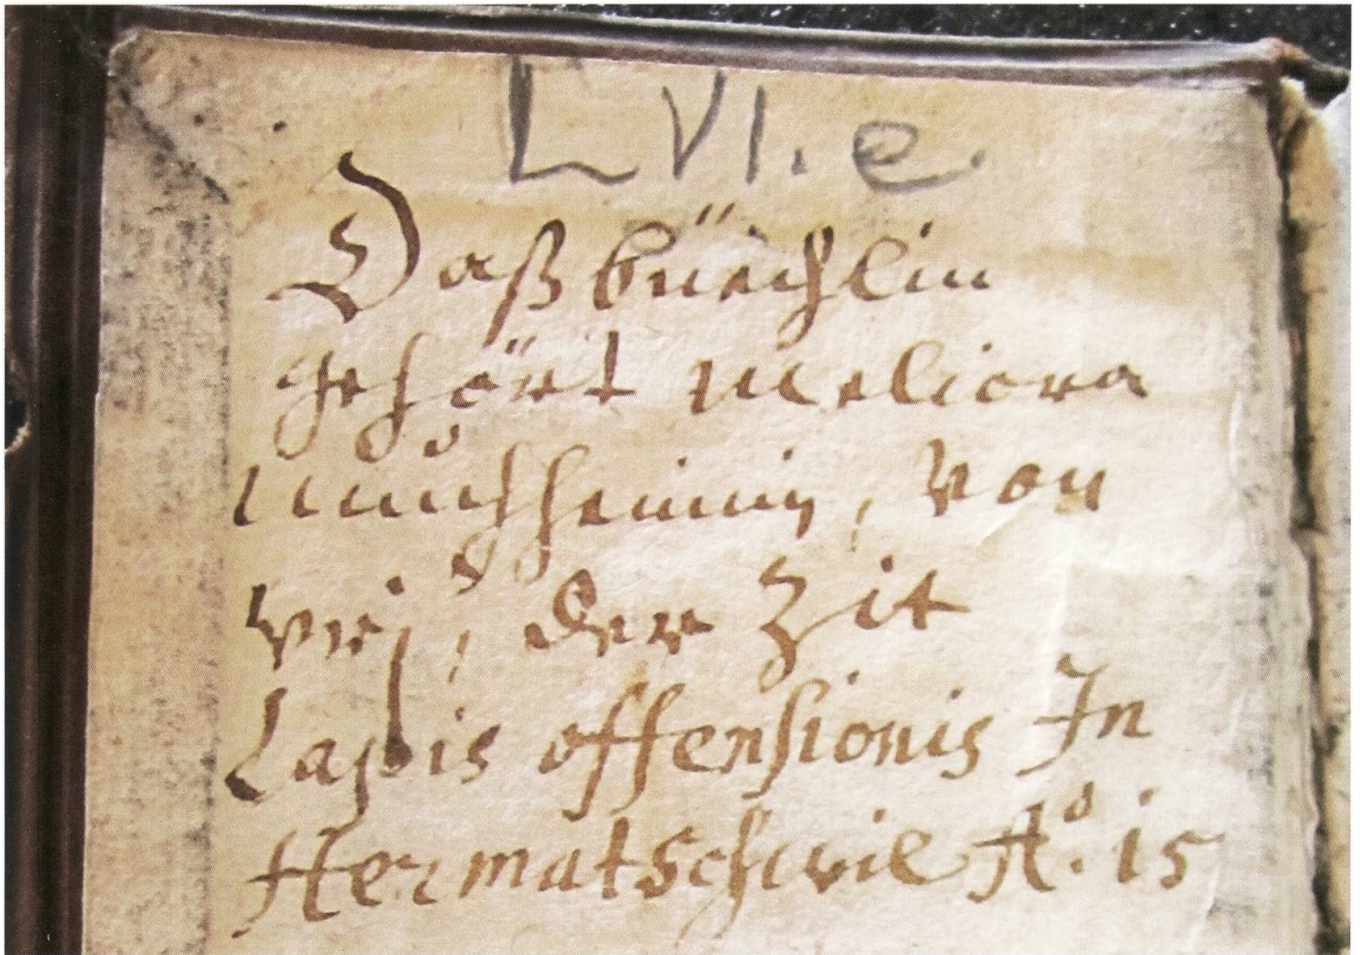 LVI. e.
Daß büechlin
gehört Meliora
muͦchheimin, von
vrj, der Zit
Lapis offensionis In
Hermatschwil A°. 15